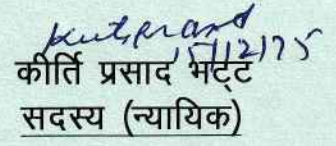 15/12/75
कीर्ति प्रसाद भट्ट
सदस्य (न्यायिक)